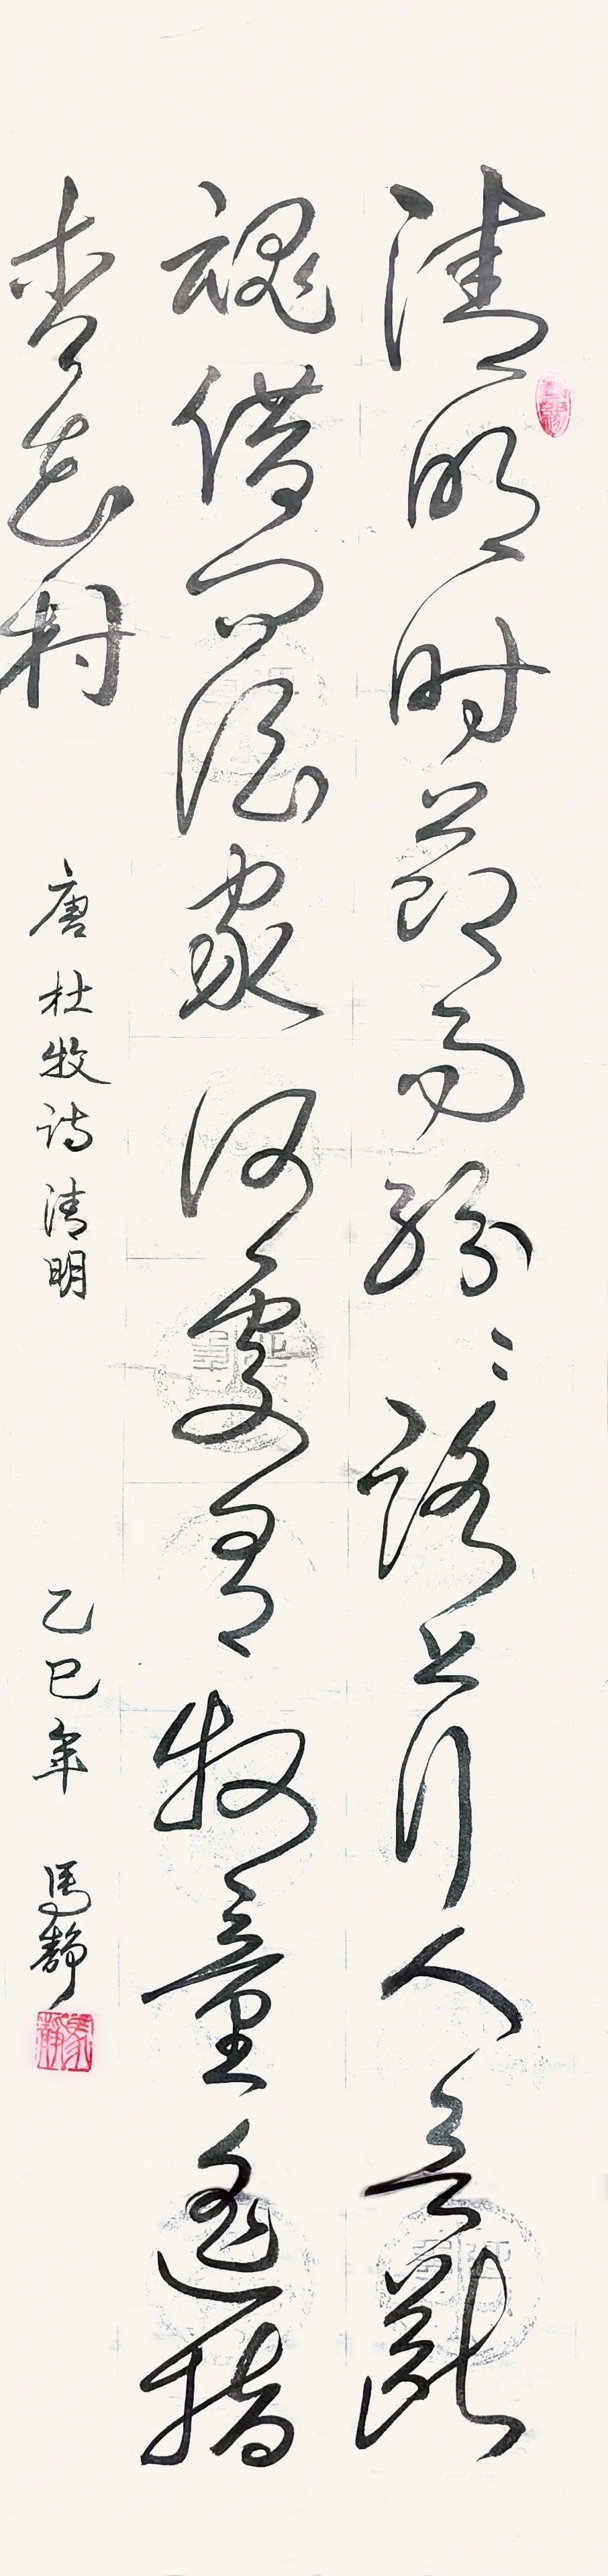 清明时节雨纷々路上行人欲断
魂借问酒家何處有牧童遥指
杏花村
唐杜牧诗清明
乙巳年 馬静
馬静